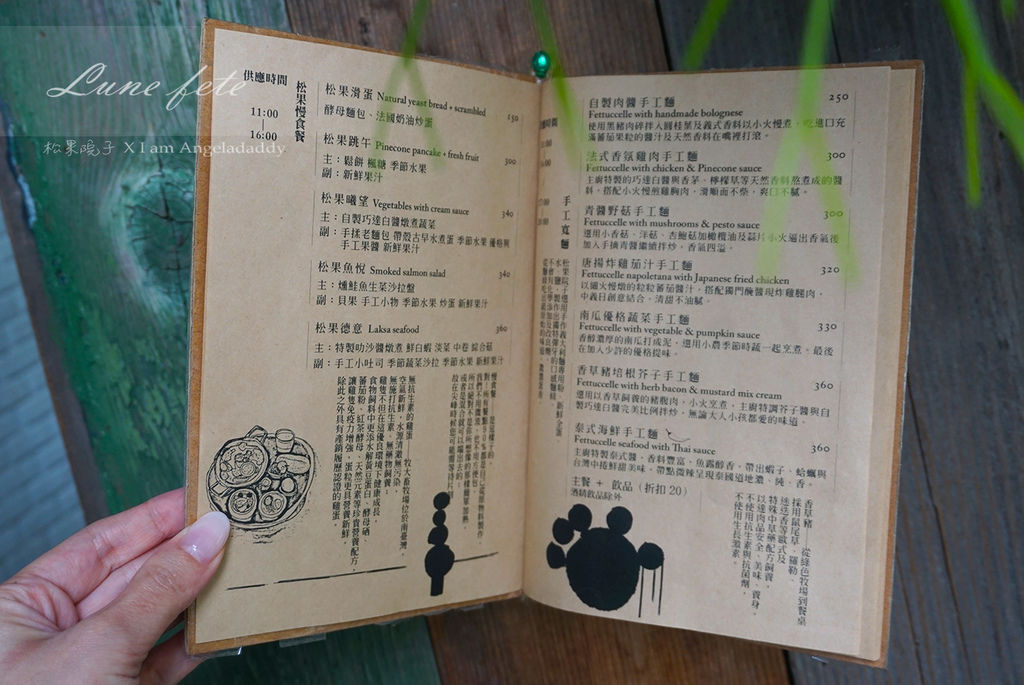 Lune fete
松果院子 X I am Angeladaddy
供應時間
11:00
16:00
松果慢食餐
松果滑蛋 Natural yeast bread + scrambled
酵母麵包、法國奶油炒蛋 150
松果跳午 Pinecone pancake + fresh fruit 300
主：鬆餅 楓糖 季節水果
副：新鮮果汁
松果曦望 Vegetables with cream sauce 340
主：自製巧達白醬燉煮蔬菜
副：手揉老麵包 帶殼古早水煮蛋 季節水果 優格與
手工果醬 新鮮果汁
松果魚悅 Smoked salmon salad 340
主：燻鮭魚生菜沙拉盤
副：貝果 手工小物 季節水果 炒蛋 新鮮果汁
松果德意 Laksa seafood 360
主：特製叻沙醬燉煮 鮮白蝦 淡菜 中卷 綜合菇
副：手工小吐司 季節蔬菜沙拉 季節水果 新鮮果汁
無抗生素的雞蛋——牧大畜牧場位於南臺灣，
空氣新鮮，水源清澈無污染，
無施打抗生素、無藥物飼養，
雞隻不但在這優良環境下健康成長，
食物飼料中更添水解黃豆蛋白、酵母硒、
蕃茄粉、紅茶酵母、天然元素等珍貴營養配方，
讓雞隻免疫力增強、蛋粒更具營養新鮮，
除此之外具有產銷履歷認證的雞蛋。
手工寬麵
自製肉醬手工麵 250
Fettuccelle with handmade bolognese
使用黑豬肉碎拌入圓桂葉及義式香料以小火慢煮，吃進口充
滿蕃茄果粒的醬汁及天然香料在嘴裡打滾。
法式香氛雞肉手工麵 300
Fettuccelle with chicken & Pinecone sauce
主廚特製的巧達白醬與香茅、檸檬草等天然香料熬煮成的醬
料，搭配小火慢煎雞胸肉，滑順而不柴，爽口不膩。
青醬野菇手工麵 300
Fettuccelle with mushrooms & pesto sauce
選用小香菇、洋菇、杏鮑菇加橄欖油及蒜片小火逼出香氣後
加入手摘青醬繼續拌炒，香氣四溢。
唐揚炸雞茄汁手工麵 320
Fettuccelle napoletana with Japanese fried chicken
以細火慢燉的粒粒蕃茄醬汁，搭配獨門醃醬現炸雞腿肉，
中義日創意結合，清甜不油膩。
南瓜優格蔬菜手工麵 330
Fettuccelle with vegetable & pumpkin sauce
香醇濃厚的南瓜打成泥，選用小農季節時蔬一起烹煮，最後
在加入少許的優格提味。
香草豬培根芥子手工麵 360
Fettuccelle with herb bacon & mustard mix cream
選用以香草飼養的豬腹肉，小火烹煮，主廚特調芥子醬與自
製巧達白醬完美比例拌炒，無論大人小孩都愛的味道。
泰式海鮮手工麵 360
Fettuccelle seafood with Thai sauce
主廚特製泰式醬，香料豐富、魚露醇香，帶出蝦子、蛤蠣與
台灣中捲鮮甜美味，帶點微辣呈現泰國道地濃、純、香。
主餐 + 飲品（折扣20）
酒精飲品除外
香草豬——從綠色牧場到餐桌
採用鼠尾草、羅勒、
迷迭香等歐式及
特殊中草藥配方飼養，
以達肉品安全、美味、養身，
不使用抗生素與抗菌劑，
不使用生長激素。